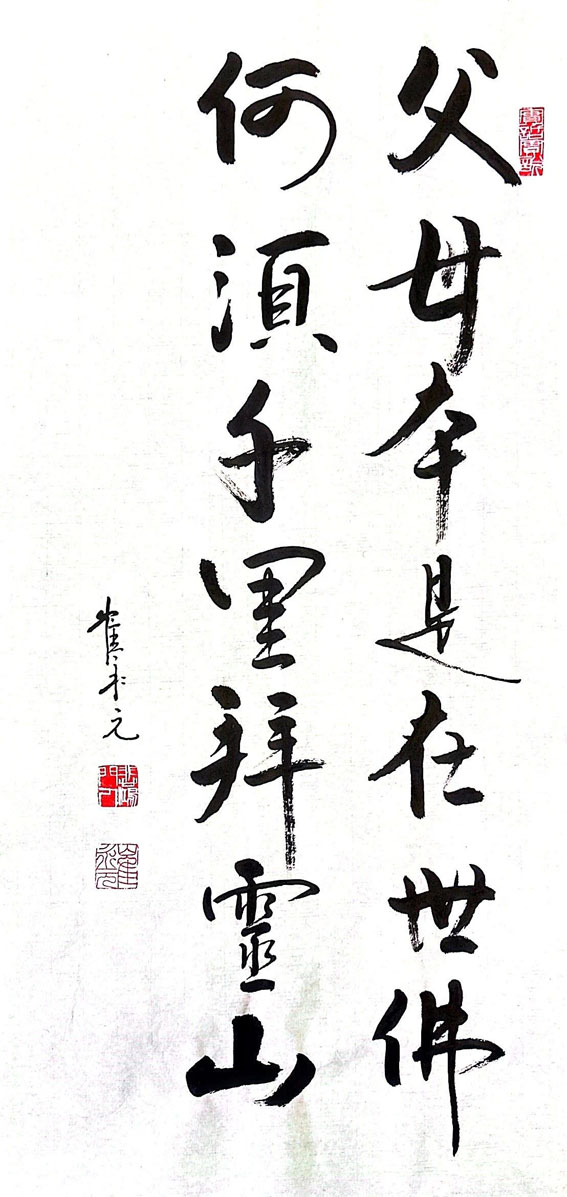 父母本是在世佛
何須千里拜靈山
崔永元